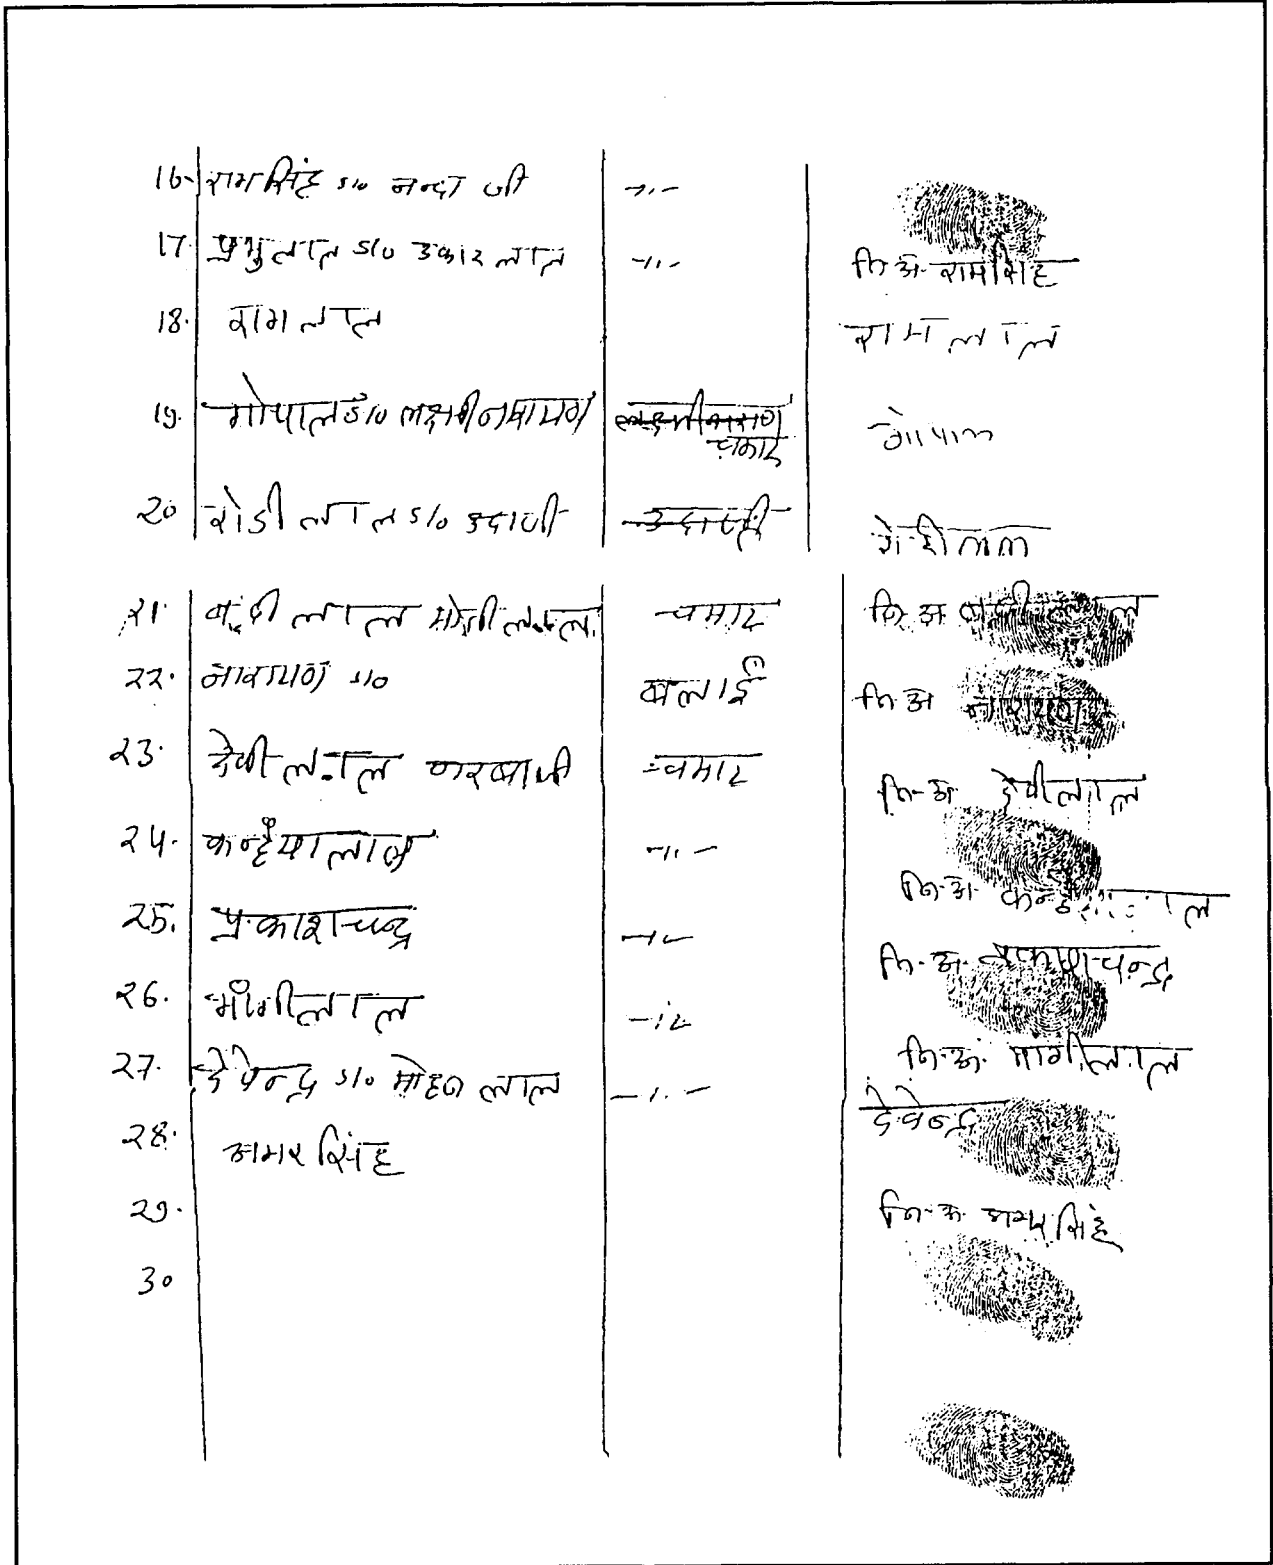 16. रामसिंह S/o नन्दा जी -〃-
17. प्रभुलाल S/o उकार लाल -〃- नि.अं. रामसिंह
18. रामलाल रामलाल
19. गोपाल S/o लक्ष्मीनारायण लक्ष्मीनारायण गोपाल
चमार
20 रोडीलाल S/o उदाजी उदाजी रोडीलाल
21. बद्रीलाल चमार नि.अं. बद्रीलाल
22. नारायण S/o बलाई नि.अं नारायण
23. देवीलाल चमार नि.अं. देवीलाल
24. कन्हैयालाल -〃- नि.अं. कन्हैयालाल
25. प्रकाशचन्द्र -〃- नि.अं. प्रकाशचन्द्र
26. मांगीलाल -〃- नि.अं. मांगीलाल
27. देवेन्द्र S/o मोहनलाल -〃- देवेन्द्र
28. अमरसिंह
29. नि.अं. अमरसिंह
30